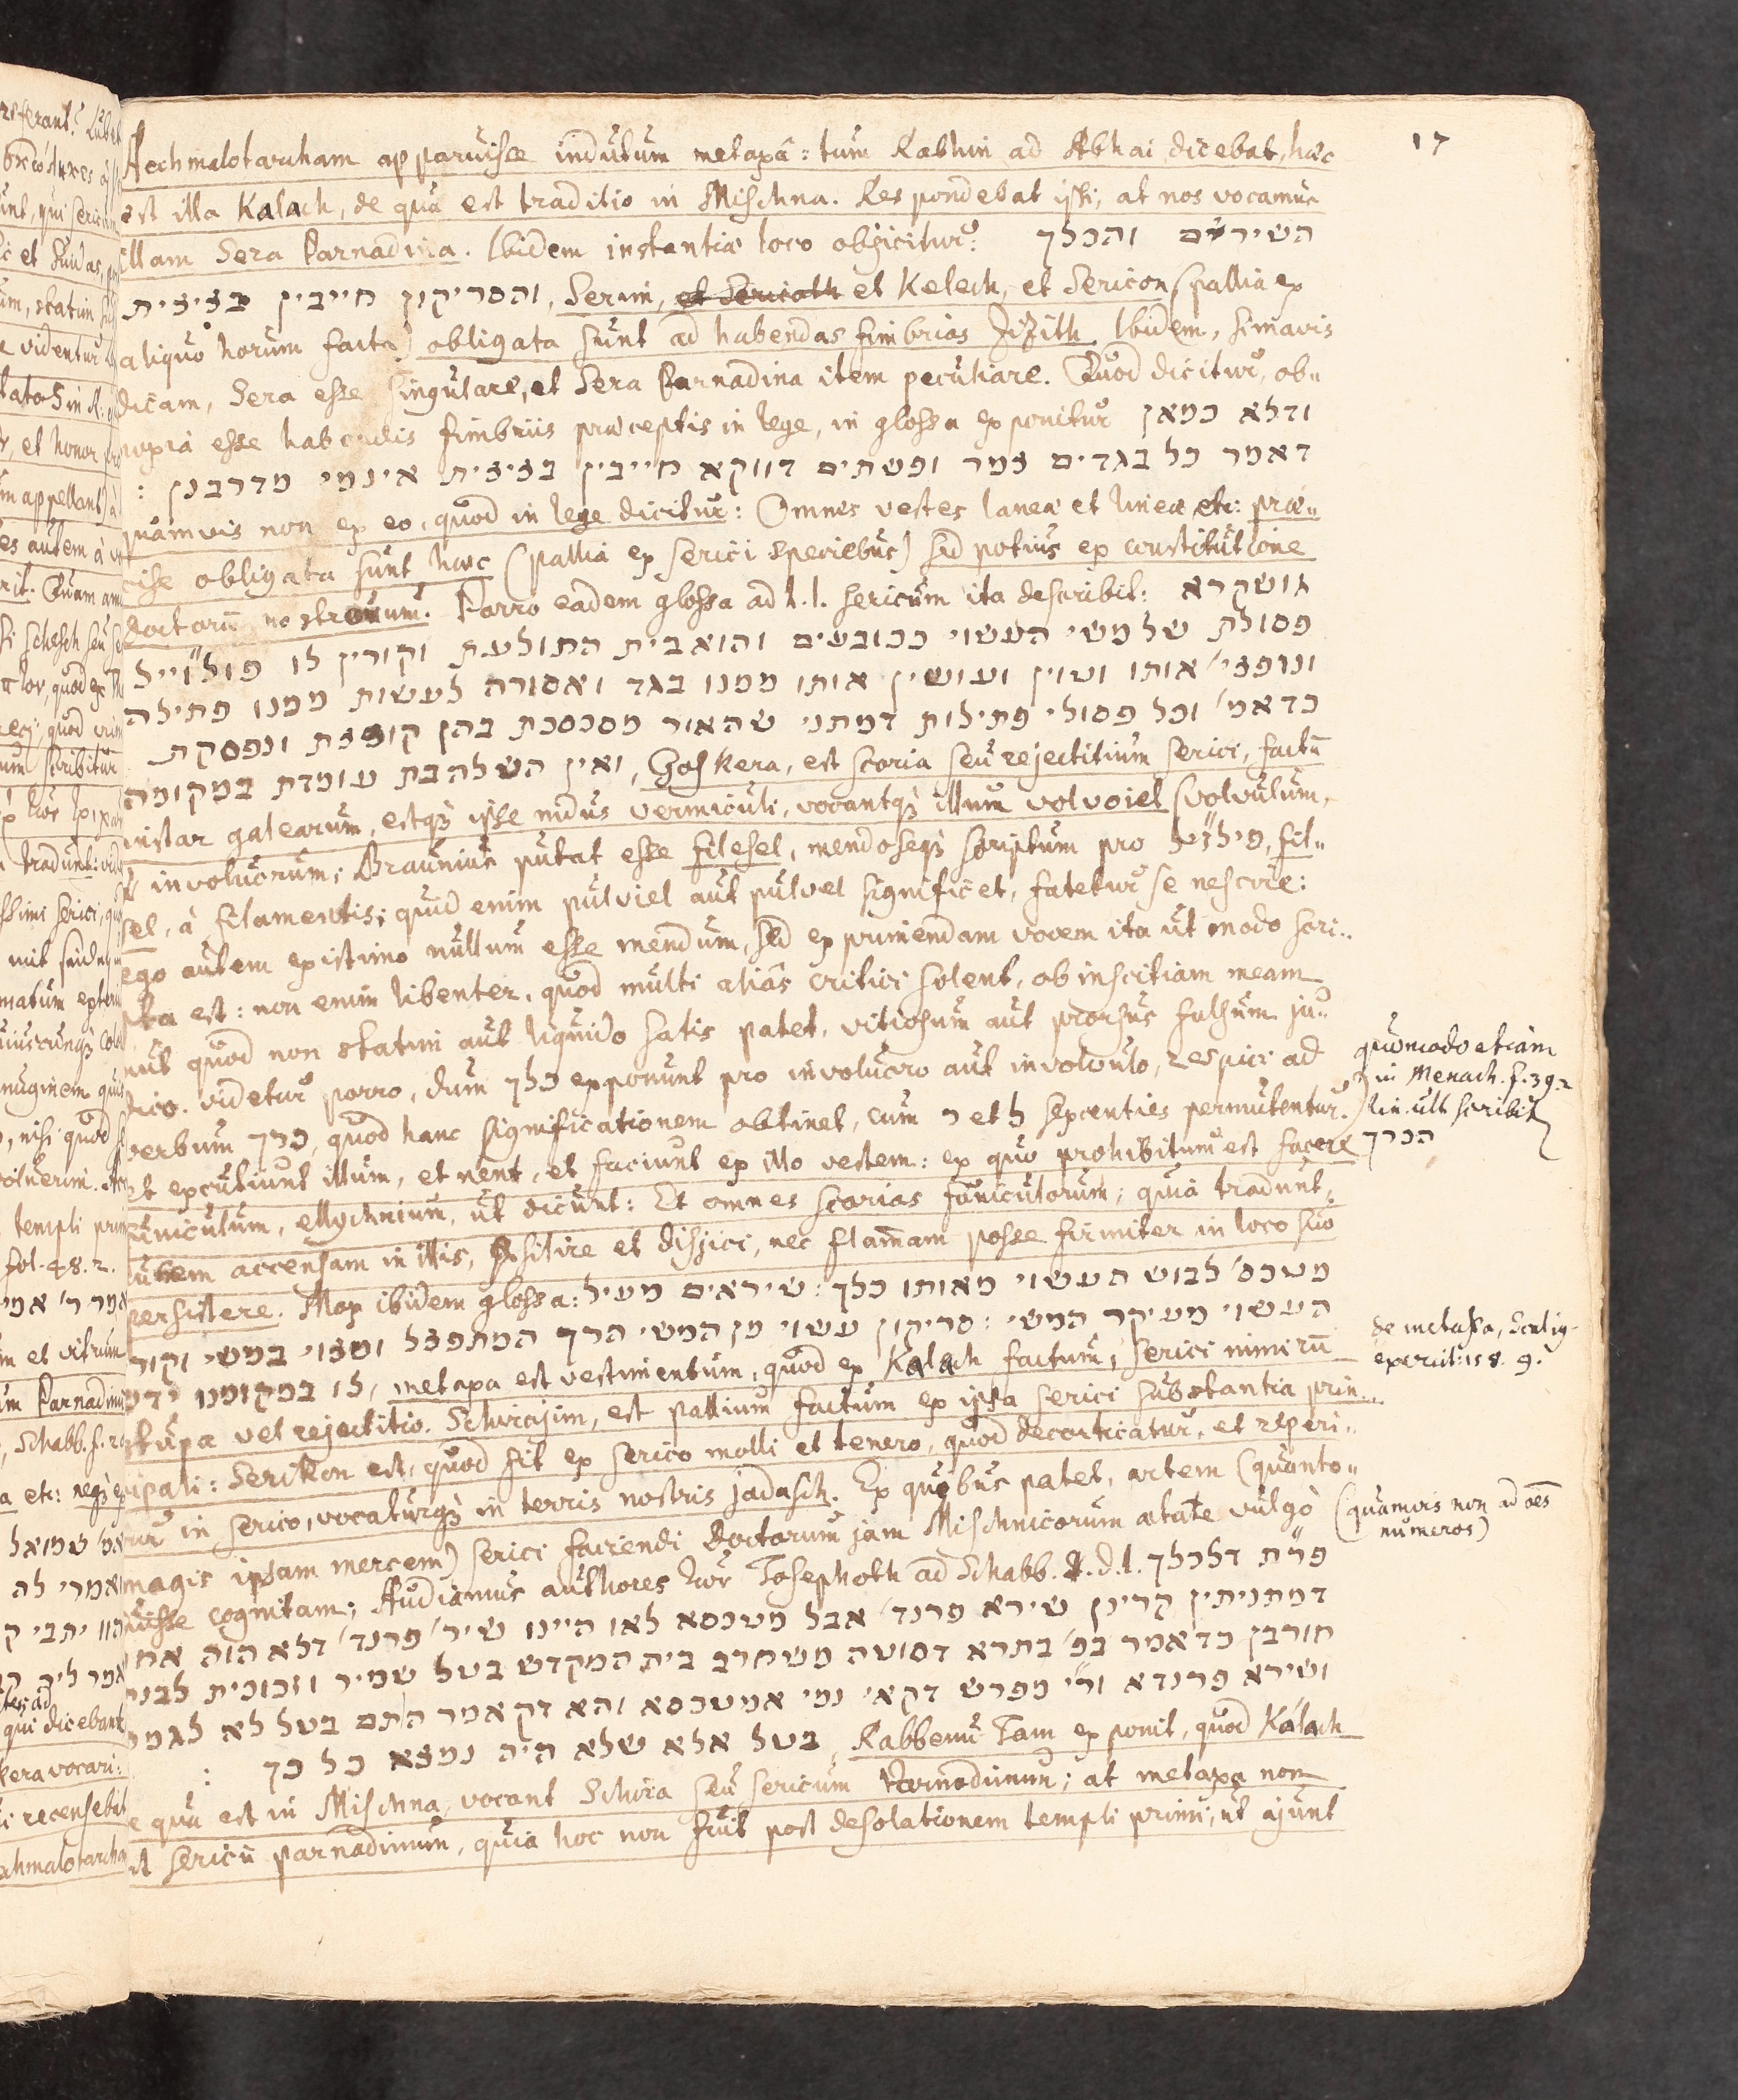 17
Aechmalotarcham apparuisse indutum metaxâ: tum Rabhin ad Abhai dicebat, hæc
est illa Kalach, de quâ est traditio in Mischna. Respondebat isti, at nos vocamus
illam Sera Parnadina. Ibidem instantiæ loco objicitur: השירים והכלך
והסריקון חייבין בציצית, Serim, et Kelech, et Sericon (pallia ex
aliquo horum facta) obligata sunt ad habendas fimbrias Zizith. Ibidem, simavis
dicam, Sera esse singulare, et Sera Parnadina item peculiare. Quod dicitur, ob-
noxia esse habendis fimbriis præceptis in lege, in glossa exponitur ודלא כמאן
דאמר כל בגדים צמר ופשתים דווקא חייבין בציצית אינמי מדרבנן :
quamvis non ex eo, quod in lege dicitur: Omnes vestes laneæ et lineæ etc: præ-
cise obligata sunt hæc (pallia ex serici speciebus) sed potius ex constitutione
doctorū nostrorum. Porro eadem glossa ad h. l. sericum ita describit: גושקרא
פסולת של משי העשוי ככובעים והוא בית התולעת וקורין לו פולו״ייל
ונופצי׳ אותו וטוין ועושין אותו ממנו בגד ואסורה לעשות ממנו פתילה
כדאמ׳ וכל פסולי פתילות דמתני שהאור מסכסכת בהן קופצת ונפסקת
ואין השלהבת עומדת במקומה, Goskera, est scoria seu rejectitium serici, factū
instar galearum, estq́ ipse nidus vermiculi, vocantq́ illum volvoiel (volvulum,
involucrum; Braunius putat esse filesel, mendoseq́ scriptum pro פילז״ל, fil-
sel, à filamentis; quid enim pulviel aut pulvel significet, fatetur se nescire:
ego autem existimo nullum esse mendum, sed exprimendam vocem ita ut modo scri-
pta est: non enim libenter, quod multi aliâs critici solent, ob inscitiam meam
aut quod non statim aut liquido satis patet, vitiosum aut prorsus falsum ju-
dico. videtur porro, dum כלך exponunt pro involucro aut involvulo, respici ad
verbum כרך, quod hanc significationem obtinet, cum ר et ל sexcenties permutentur.)
quomodo etiam
in Menach. f. 39. 2
lin. ult. scribit
הכרך
et excutiunt illum, et nent, et faciunt ex illo vestem: ex quo prohibitum est facere
funiculum, ellychnium, ut dicunt: Et omnes scorias funiculorum; quia tradunt,
accensam in illis, exsilire et disjici, nec flam̄am posse firmiter in loco suo
persistere. Mox ibidem glossa: מטכס׳ לבוש העשוי מאותו כלך : שיראים מעיל
העשוי מעיקר המשי : סריקון עשוי מן המשי הרך המתפצל ומצוי במשי וקור
לו במקומנו, metaxa est vestimentum, quod ex Kalach factum, serici nimirū
de metaxa, Scalig.
exercit: 158. 9.
stupa vel rejectitio. Schirajim, est pallium factum ex ipsa serici substantia prin-
cipali: Serikon est, quod fit ex serico molli et tenero, quod decorticatur, et reperi-
tur in serico, vocaturq́ in terris nostris jadasch. Ex quibus patet, artem (quanto-
magis ipsam mercem) serici faciendi Doctorum jam Mischnicorum ætate vulgò
(quamvis non ad oēs
numeros)
fuisse cognitam; Audiamus authores τῶν Tosephoth ad Schabb. d. l. פר״ת דלכלך
דמתניתין קרינן שירא פרנד׳ אבל מטכסא לאו היינו שיר׳ פרנד׳ דלא הוה אח
חורבן כדאמר בפ׳ בתרא דסוטה משחרב בית המקדש בטל שמיר וזכוכית לבנה
ושירא פרנדא ור״י מפרש דקאי נמי אמטכסא והא דקאמר התם בטל לא לגמר
בטל אלא שלא היה נמצא כל כך : Rabbenu Tam exponit, quod Kalach
de quâ est in Mischna, vocant Schira seu sericum Parnadinum; at metaxa non
est sericū parnadinum, quia hoc non fuit post desolationem templi primi; ut ajunt